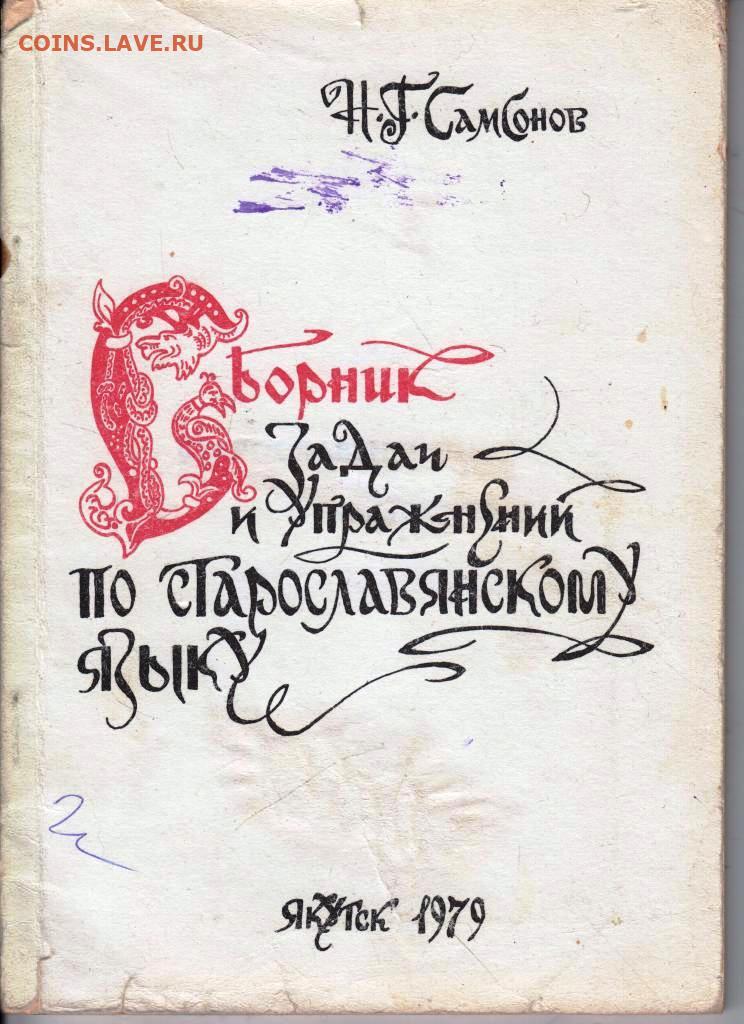 COINS.LAVE.RU
Н.Г. Самсонов
Сборник
задач
и упражнений
по старославянскому
языку
Якутск 1979